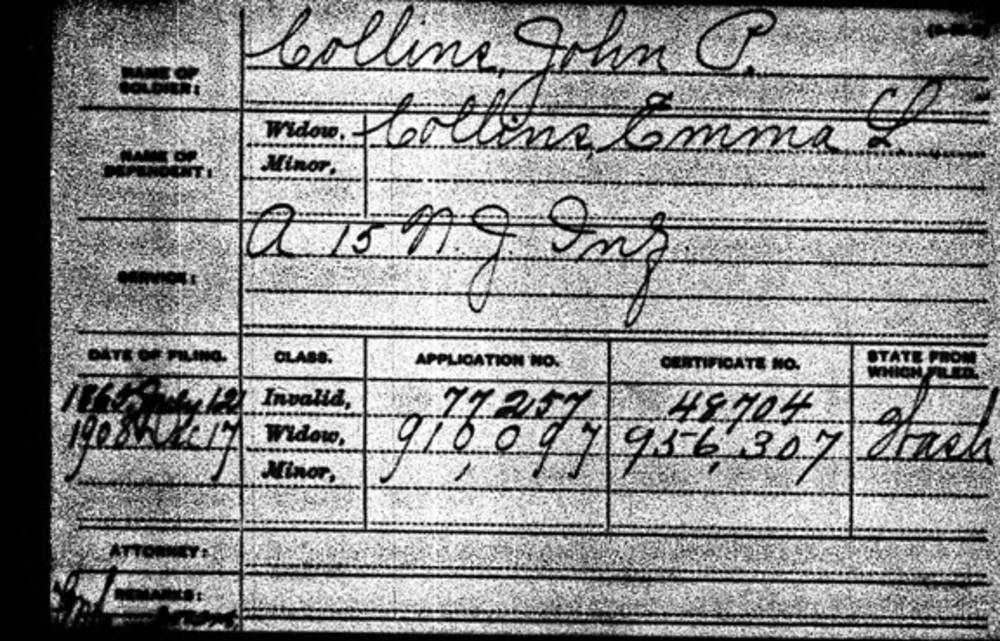 Collins, John P.
NAME OF
SOLDIER:
Widow, Collins, Emma L.
NAME OF
DEPENDENT:
Minor,
A 15 N.J. Inf.
SERVICE:
DATE OF FILING. CLASS. APPLICATION NO. CERTIFICATE NO. STATE FROM WHICH FILED.
1865 July 12 Invalid, 77257 48704
1908 Dec 17 Widow, 910,097 956,307 Wash
Minor,
ATTORNEY:
REMARKS: